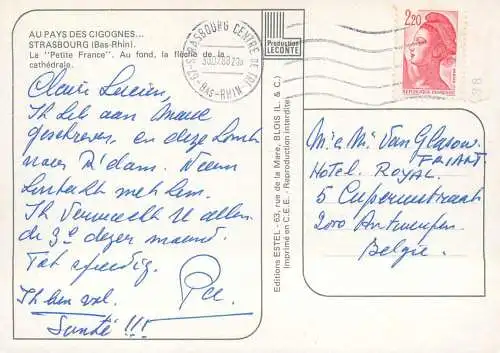 AU PAYS DES CIGOGNES...
STRASBOURG (Bas-Rhin).
La "Petite France". Au fond, la flèche de la
cathédrale.
67-STRASBOURG CENTRE DE TRI
BAS-RHIN
Production
LECONTE
2,20
REPUBLIQUE FRANÇAISE
Ik heb aan
geschreven, en deze komt
naar R'dam. Neem
kontakt met hem.
Ik verwacht U allen
de 3e dezer maand.
Tot spoedig.
Ik ben vol.
Santé !!!
Editions ESTEL - 63, rue de la Mare, BLOIS (L. & C.)
Imprimé en C.E.E. - Reproduction interdite
M. & Mr Van Glasow
FRIART
HOTEL ROYAL.
5
2000 Antwerpen
België.